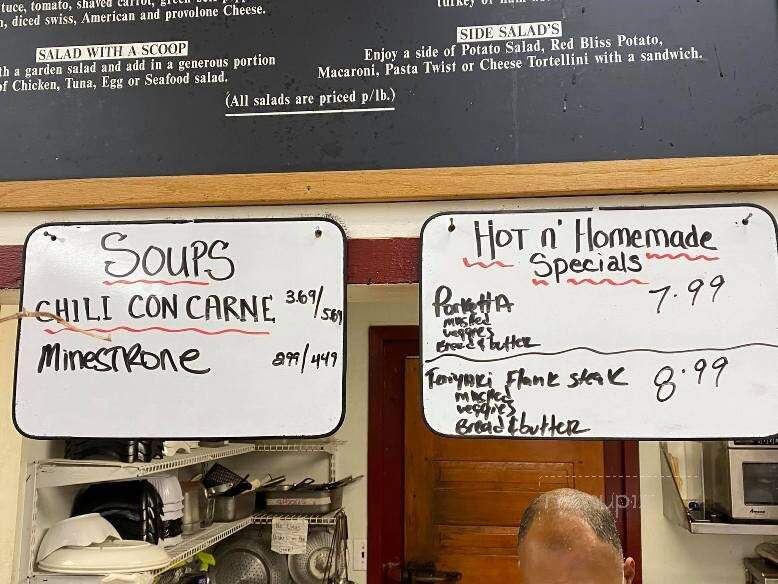 tuce, tomato, shaved carrot,
n, diced swiss, American and provolone Cheese.
SALAD WITH A SCOOP
th a garden salad and add in a generous portion
of Chicken, Tuna, Egg or Seafood salad.
SIDE SALAD'S
Enjoy a side of Potato Salad, Red Bliss Potato,
Macaroni, Pasta Twist or Cheese Tortellini with a sandwich.
(All salads are priced p/lb.)
SOUPS
CHILI CON CARNE 3.69/5.69
MINESTRONE 2.99/4.49
HOT n' Homemade
Specials
PorkettA 7.99
mashed
veggies
Bread & butter
Teriyaki Flank steak 8.99
mashed
veggies
Bread & butter